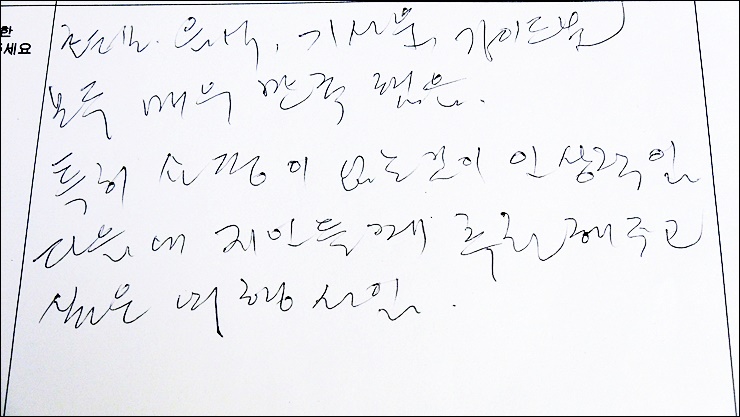 한
세요
음식, 기사분, 가이드분
모두 매우 만족 했음.
특히 쇼핑이 없는것이 인상적임
다음에 지인들께 추천해주고
싶은 여행사임.